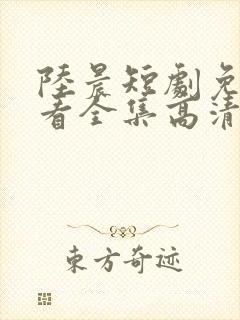 陸晨短劇免
看全集高清
东方奇迹